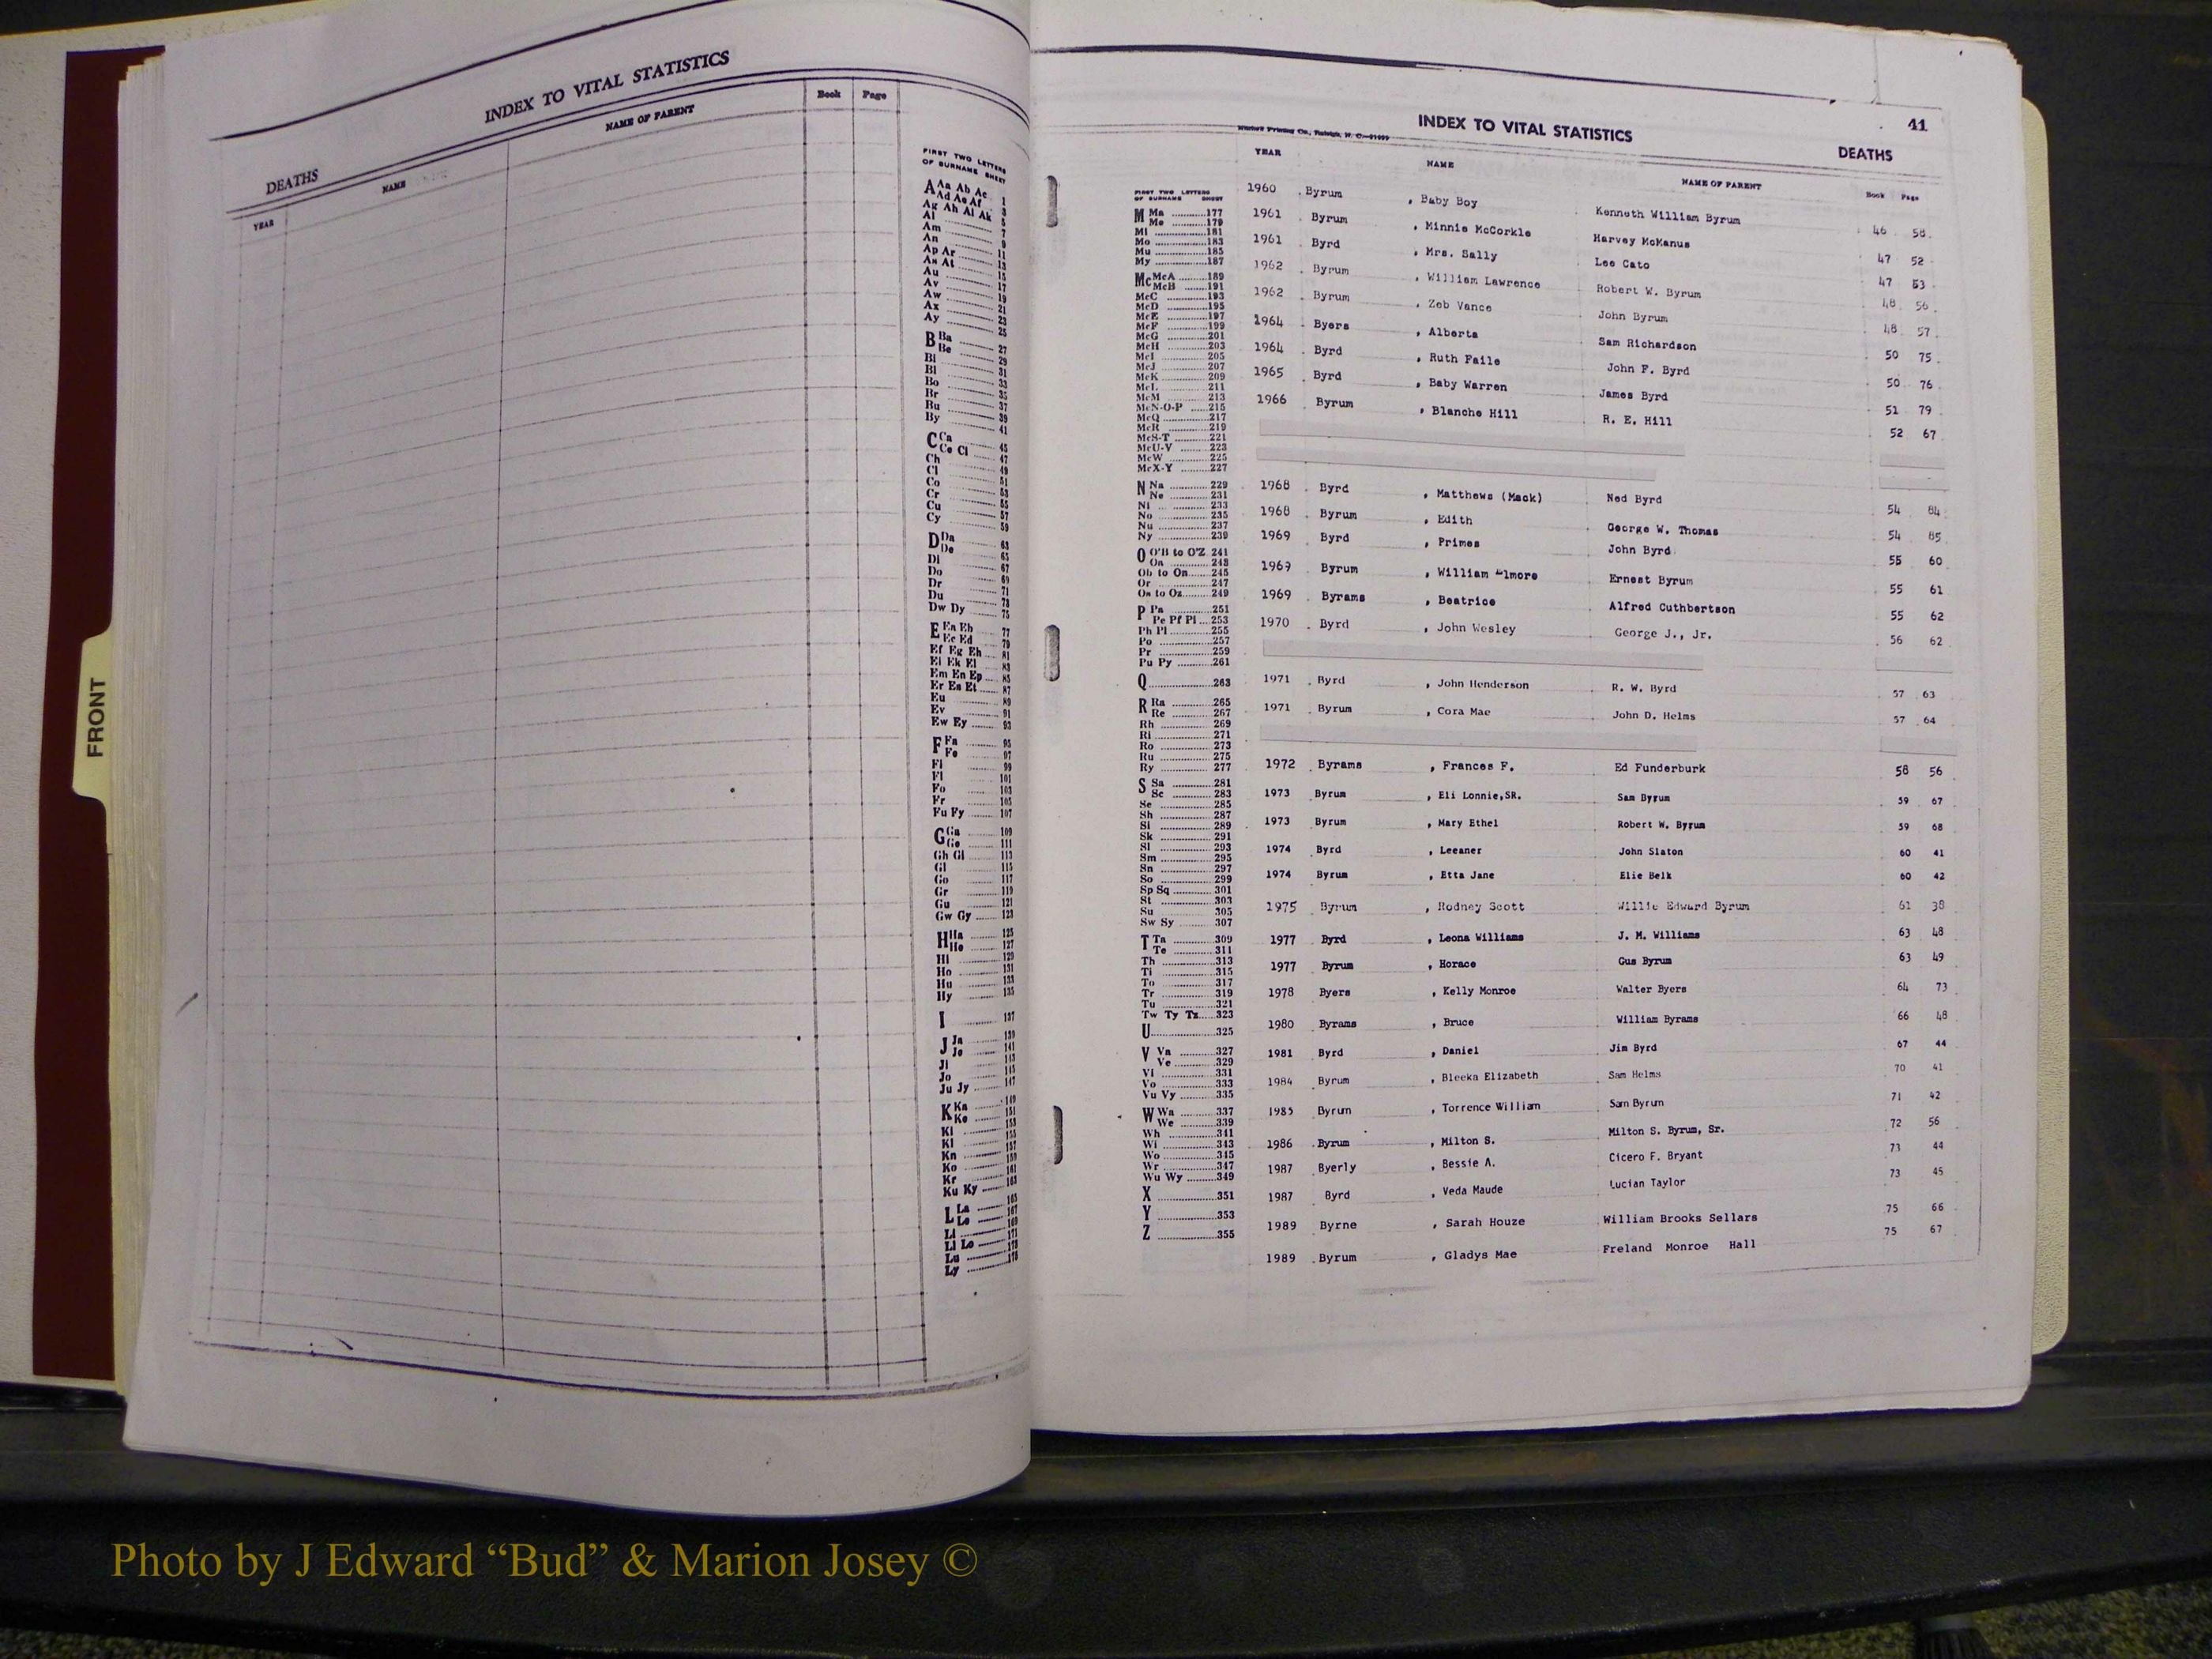 INDEX TO VITAL STATISTICS
DEATHS
YEAR NAME NAME OF PARENT Book Page
FIRST TWO LETTERS
OF SURNAME SHEET
A Aa Ab Ac 1
Ad Ae Af 3
Ag Ah Ai Ak 5
Al 7
Am 9
An 11
Ap Ar 13
As At 15
Au 17
Av 19
Aw 21
Ax 23
Ay 25
B Ba 27
Be 29
Bi 31
Bl 33
Bo 35
Br 37
Bu 39
By 41
C Ca 45
Ce Ci 47
Ch 49
Cl 51
Co 53
Cr 55
Cu 57
Cy 59
D Da 63
De 65
Di 67
Do 69
Dr 71
Du 73
Dw Dy 75
E Ea Eb 77
Ec Ed 79
Ef Eg Eh 81
Ei Ek El 83
Em En Ep 85
Er Es Et 87
Eu 89
Ev 91
Ew Ey 93
F Fa 95
Fe 97
Fi 99
Fl 101
Fo 103
Fr 105
Fu Fy 107
G Ga 109
Ge 111
Gh Gi 113
Gl 115
Go 117
Gr 119
Gu 121
Gw Gy 123
H Ha 125
He 127
Hi 129
Ho 131
Hu 133
Hy 135
I 137
J Ja 139
Je 141
Ji 143
Jo 145
Ju Jy 147
K Ka 149
Ke 151
Ki 153
Kl 155
Kn 157
Ko 159
Kr 161
Ku Ky 163
L La 165
Le 167
Li 169
Ll Lo 171
Lu 173
Ly 175
FRONT
41
INDEX TO VITAL STATISTICS
DEATHS
YEAR NAME NAME OF PARENT Book Page
FIRST TWO LETTERS
OF SURNAME SHEET
M Ma 177
Me 179
Mi 181
Mo 183
Mu 185
My 187
Mc McA 189
McB 191
McC 193
McD 195
McE 197
McF 199
McG 201
McH 203
McI 205
McJ 207
McK 209
McL 211
McM 213
McN-O-P 215
McQ 217
McR 219
McS-T 221
McU-V 223
McW 225
McX-Y 227
N Na 229
Ne 231
Ni 233
No 235
Nu 237
Ny 239
O O'B to O'Z 241
Oa 243
Ob to On 245
Or 247
Os to Oz 249
P Pa 251
Pe Pf Pi 253
Ph Pl 255
Po 257
Pr 259
Pu Py 261
Q 263
R Ra 265
Re 267
Rh 269
Ri 271
Ro 273
Ru 275
Ry 277
S Sa 281
Sc 283
Se 285
Sh 287
Si 289
Sk 291
Sl 293
Sm 295
Sn 297
So 299
Sp Sq 301
St 303
Su 305
Sw Sy 307
T Ta 309
Te 311
Th 313
Ti 315
To 317
Tr 319
Tu 321
Tw Ty Tz 323
U 325
V Va 327
Ve 329
Vi 331
Vo 333
Vu Vy 335
W Wa 337
We 339
Wh 341
Wi 343
Wo 345
Wr 347
Wu Wy 349
X 351
Y 353
Z 355
1960 Byrum , Baby Boy Kenneth William Byrum 46 58
1961 Byrum , Minnie McCorkle Harvey McManus 47 52
1961 Byrd , Mrs. Sally Lee Cato 47 53
1962 Byrum , William Lawrence Robert W. Byrum 48 56
1962 Byrum , Zeb Vance John Byrum 48 57
1964 Byers , Alberta Sam Richardson 50 75
1964 Byrd , Ruth Faile John F. Byrd 50 76
1965 Byrd , Baby Warren James Byrd 51 79
1966 Byrum , Blanche Hill R. E. Hill 52 67
1968 Byrd , Matthews (Mack) Ned Byrd 54 84
1968 Byrum , Edith George W. Thomas 54 85
1969 Byrd , Primes John Byrd 55 60
1969 Byrum , William Elmore Ernest Byrum 55 61
1969 Byrams , Beatrice Alfred Cuthbertson 55 62
1970 Byrd , John Wesley George J., Jr. 56 62
1971 Byrd , John Henderson R. W. Byrd 57 63
1971 Byrum , Cora Mae John D. Helms 57 64
1972 Byrams , Frances F. Ed Funderburk 58 56
1973 Byrum , Eli Lonnie,SR. Sam Byrum 59 67
1973 Byrum , Mary Ethel Robert W. Byrum 59 68
1974 Byrd , Leeaner John Slaton 60 41
1974 Byrum , Etta Jane Elie Belk 60 42
1975 Byrum , Rodney Scott Willie Edward Byrum 61 38
1977 Byrd , Leona Williams J. M. Williams 63 48
1977 Byrum , Horace Gus Byrum 63 49
1978 Byers , Kelly Monroe Walter Byers 64 73
1980 Byrams , Bruce William Byrams 66 48
1981 Byrd , Daniel Jim Byrd 67 44
1984 Byrum , Bleeka Elizabeth Sam Helms 70 41
1985 Byrum , Torrence William Sam Byrum 71 42
1986 Byrum , Milton S. Milton S. Byrum, Sr. 72 56
1987 Byerly , Bessie A. Cicero F. Bryant 73 44
1987 Byrd , Veda Maude Lucian Taylor 73 45
1989 Byrne , Sarah Houze William Brooks Sellars 75 66
1989 Byrum , Gladys Mae Freland Monroe Hall 75 67
Photo by J Edward “Bud” & Marion Josey ©